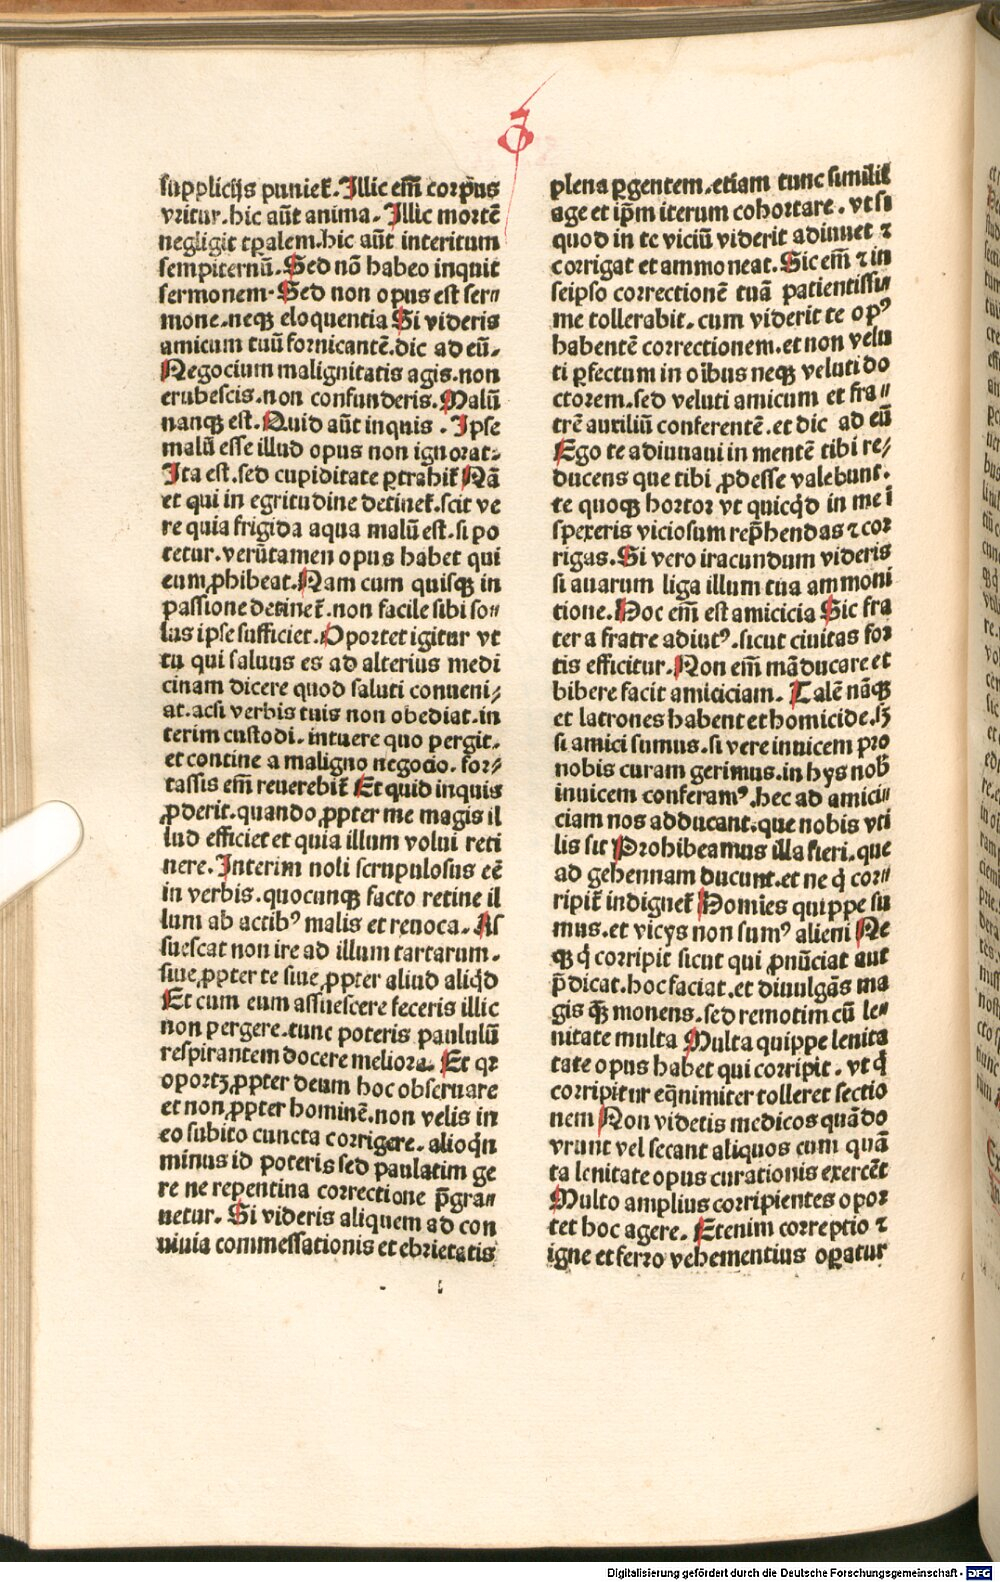 ſupplicijs puniet᷑. Illic em̄ corpus
vritur. hic aūt anima. Illic mortē
negligit tꝑalem. hic aūt interitum
ſempiternū. Sed nō habeo inquit
ſermonem. Sed non opus eſt ſer⸗
mone. neqꝫ eloquentia Si videris
amicum tuū fornicantē. dic ad eū.
Negocium malignitatis agis. non
erubeſcis. non confunderis. Malū
nanqꝫ eſt. Quid aūt inquis. Ipſe
malū eſſe illud opus non ignorat:
Ita eſt. ſed cupiditate ꝑtrahit᷑ Nā
et qui in egritudine detinet᷑. ſcit ve
re quia frigida aqua malū eſt. ſi po
tetur. verūtamen opus habet qui
eum ꝓhibeat. Nam cum quiſqꝫ in
paſſione detinet᷑. non facile ſibi ſo⸗
lus ipſe ſufficiet. Oportet igitur vt
tu qui ſaluus es ad alterius medi
cinam dicere quod ſaluti conueni⸗
at. acſi verbis tuis non obediat. in
terim cuſtodi. intuere quo pergit.
et contine a maligno negocio. for⸗
taſſis em̄ reuerebit᷑ Et quid inquis
ꝓderit. quando ꝓpter me magis il
lud efficiet et quia illum volui reti
nere. Interim noli ſcrupuloſus eē
in verbis. quocunqꝫ facto retine il
lum ab actibꝰ malis et reuoca. Aſ
ſueſcat non ire ad illum tartarum.
ſiue ꝓpter te ſiue ꝓpter aliud aliqͥd
Et cum eum aſſueſcere feceris illic
non pergere. tunc poteris paululū
reſpirantem docere meliora. Et qꝛ
oportꝫ ꝓpter deum hoc obſeruare
et non ꝓpter hominē. non velis in
eo ſubito cuncta corrigere. alioqͥn
minus id poteris ſed paulatim ge
re ne repentina correctione p̄gra⸗
uetur. Si videris aliquem ad con
uiuia commeſſationis et ebrietatis
plena ꝑgentem. etiam tunc ſimilit᷑
age et ip̄m iterum cohortare. vt ſi
quod in te viciū viderit adiuuet ⁊
corrigat et ammoneat. Sic em̄ ⁊ in
ſeipſo correctionē tuā patientiſſi⸗
me tollerabit. cum viderit te opꝰ
habentē correctionem. et non velu
ti ꝑfectum in oībus neqꝫ veluti do
ctorem. ſed veluti amicum et fra⸗
trē auriliū conferentē. et dic ad eū
Ego te adiuuaui in mentē tibi re⸗
ducens que tibi ꝓdeſſe valebunt.
te quoqꝫ hortor vt quicqͥd in me ī
ſpexeris vicioſum rep̄hendas ⁊ cor
rigas. Si vero iracundum videris
ſi auarum liga illum tua ammoni
tione. Hoc em̄ eſt amicicia Sic fra
ter a fratre adiutꝰ. ſicut ciuitas for
tis efficitur. Non em̄ māducare et
bibere facit amiciciam. Talē nāqꝫ
et latrones habent et homicide. ſꝫ
ſi amici ſumus. ſi vere inuicem pro
nobis curam gerimus. in hys nob̄
inuicem conferamꝰ. hec ad amici⸗
ciam nos adducant. que nobis vti
lis ſit Prohibeamus illa fieri. que
ad gehennam ducunt. et ne qͥ cor⸗
ripit᷑ indignet᷑ Homīes quippe ſu
mus. et vicys non ſumꝰ alieni Ne
qꝫ qͥ corripit ſicut qui ꝓnūciat aut
p̄dicat. hoc faciat. et diuulgās ma
gis qꝫ̄ monens. ſed remotim cū le⸗
nitate multa Multa quippe lenita
tate opus habet qui corripit. vt qͥ
corripitur eq̄nimiter tolleret ſectio
nem Non videtis medicos quādo
vrunt vel ſecant aliquos cum quā
ta lenitate opus curationis exercēt
Multo amplius corripientes opor
tet hoc agere. Etenim correptio ⁊
igne et ferro vehementius oꝑatur
Digitalisierung gefördert durch die Deutsche Forschungsgemeinschaft - DFG